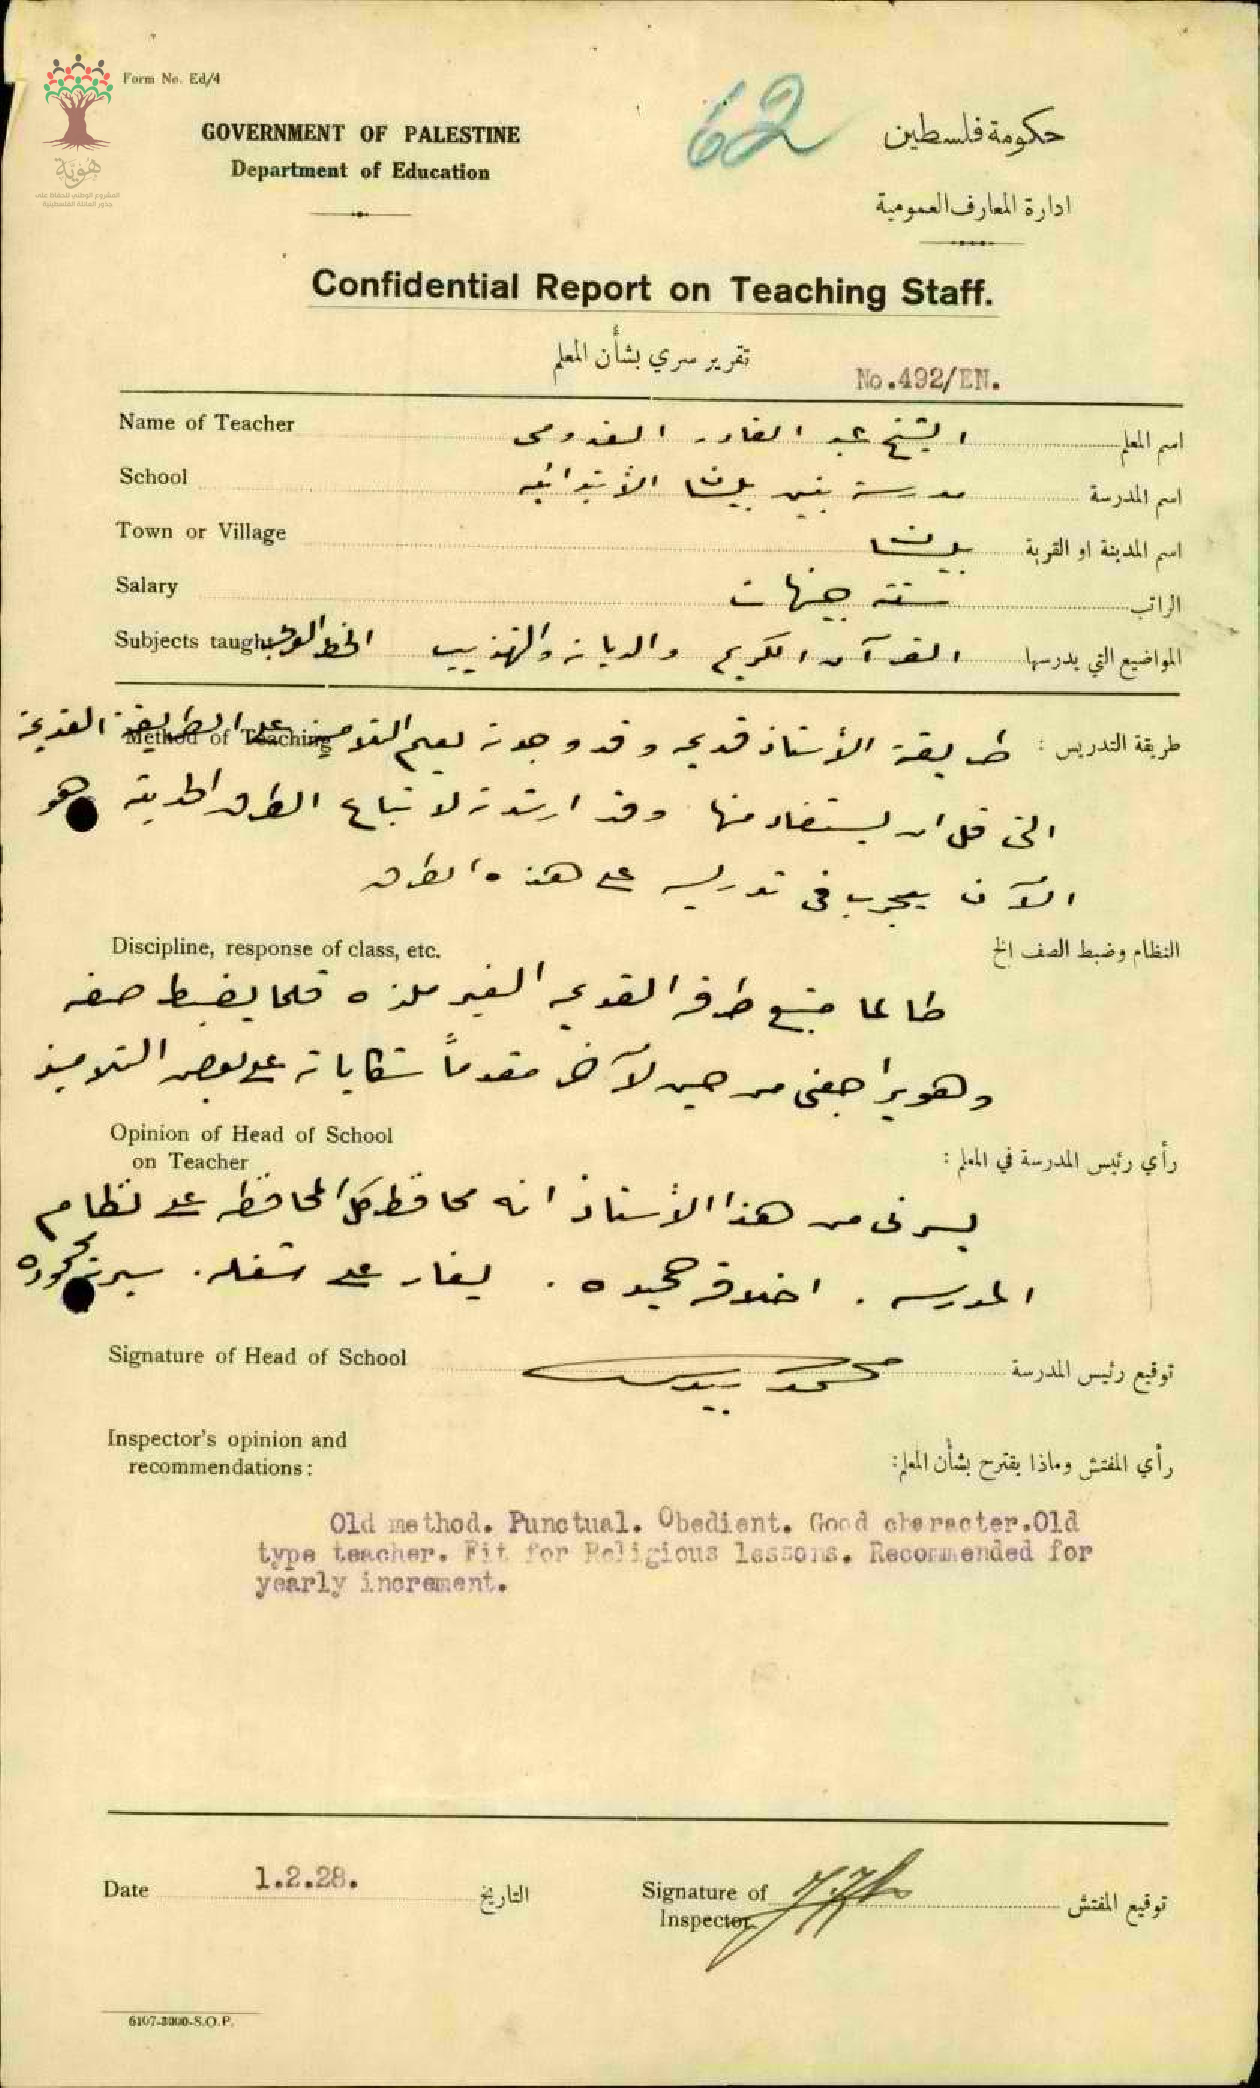 Form No. Ed/4
62
GOVERNMENT OF PALESTINE
حكومة فلسطين
Department of Education
ادارة المعارف العمومية
هوية
المشروع الوطني للحفاظ على
جذور العائلة الفلسطينية
Confidential Report on Teaching Staff.
تقرير سري بشأن المعلم
No.492/EN.
Name of Teacher الشيخ عبد القادر القدومي اسم المعلم
School مدرسة بنين بيسان الأبتدائيه اسم المدرسة
Town or Village بيسان اسم المدينة او القرية
Salary ستة جنيهات الراتب
Subjects taught القرآن الكريم والديانة والتهذيب الخط العربي المواضيع التي يدرسها
Method of Teaching
طريقة التدريس : طريقة الأستاذ قديمه وقد وجدته يعلم التلاميذ على الطريقة القديمة
التي قل ان يستفاد منها وقد ارشدته لاتباع الطرق الحديثة وهو
الآن يجرب في تدريسه على هذه الطرق
Discipline, response of class, etc. النظام وضبط الصف الخ
طالما متبع طرقه القديمه الغير ملذه قلما يضبط صفه
وهو يراجعني من حين لآخر مقدماً شكاياته على بعض التلاميذ
Opinion of Head of School
on Teacher
رأي رئيس المدرسة في المعلم :
يسرني من هذا الأستاذ انه محافظ كل المحافظه على نظام
المدرسه . اخلاقه حميده . يغار على شغله . سيرته محموده
Signature of Head of School محمد توقيع رئيس المدرسة
Inspector's opinion and
recommendations :
رأي المفتش وماذا يقترح بشأن المعلم:
Old method. Punctual. Obedient. Good character.Old
type teacher. Fit for Religious lessons. Recommended for
yearly increment.
Date 1.2.28. التاريخ
Signature of
Inspector
توقيع المفتش
6107-3000-S.O.P.